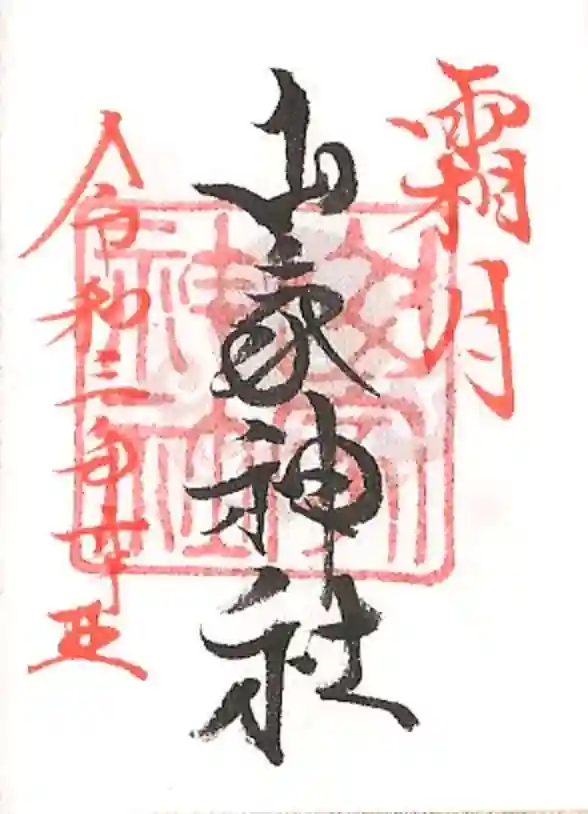 霜月
山家神社
令和三年辛丑